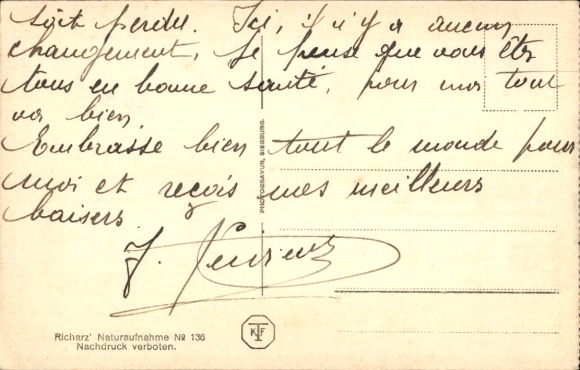 soit perdu. Ici, il n'y a aucun
changement, Je pense que vous êtes
tous en bonne santé, pour moi tout
va bien.
Embrasse bien tout le monde pour
moi et reçois mes meilleurs
baisers.
J.
PHOTOGRAVUR, SIEGBURG.
Richarz' Naturaufnahme № 136
Nachdruck verboten.